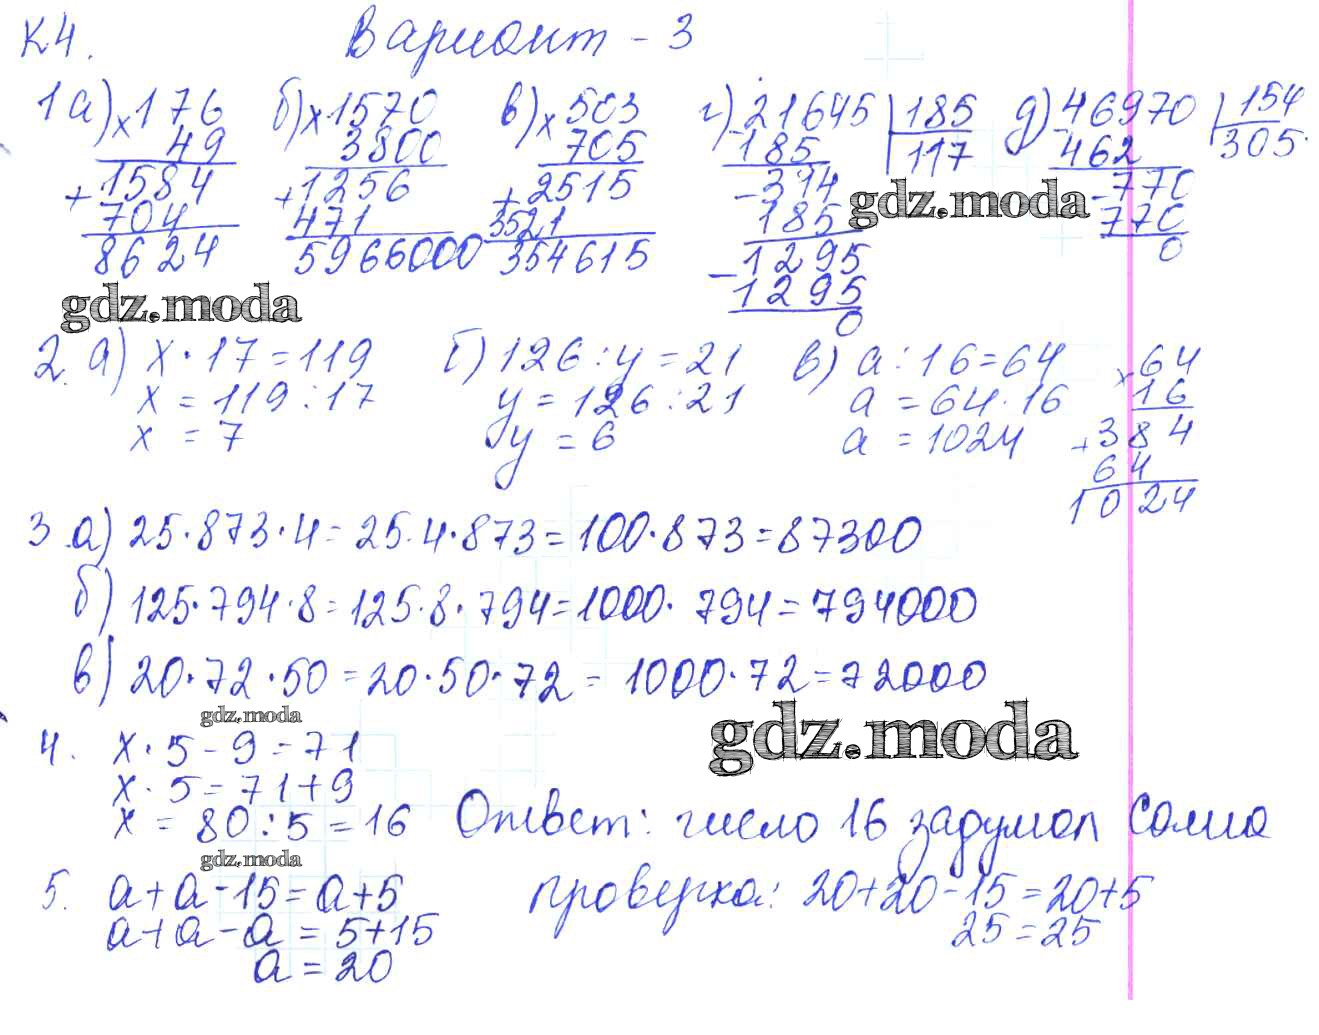 К4. Вариант - 3
1 а) × 176 б) × 1570 в) × 503 г) 21645 | 185 д) 46970 | 154
49 3800 705 185 117 462 305.
+ 1584 + 1256 + 2515 - 314 - 770
704 471 3521 185 770
8624 5966000 354615 - 1295 0
1295
0
gdz.moda
gdz.moda
2. а) x · 17 = 119 б) 126 : y = 21 в) a : 16 = 64 × 64
x = 119 : 17 y = 126 : 21 a = 64 · 16 16
x = 7 y = 6 a = 1024 + 384
64
1024
3 .а) 25 · 873 · 4 = 25 · 4 · 873 = 100 · 873 = 87300
б) 125 · 794 · 8 = 125 · 8 · 794 = 1000 · 794 = 794000
в) 20 · 72 · 50 = 20 · 50 · 72 = 1000 · 72 = 72000
gdz.moda
gdz.moda
4. x · 5 - 9 = 71
x · 5 = 71 + 9
x = 80 : 5 = 16 Ответ: число 16 задумал Сома
gdz.moda
5. a + a - 15 = a + 5 проверка: 20 + 20 - 15 = 20 + 5
a + a - a = 5 + 15 25 = 25
a = 20